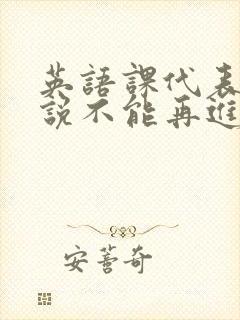 英語課代表
說不能再進
安蒼奇